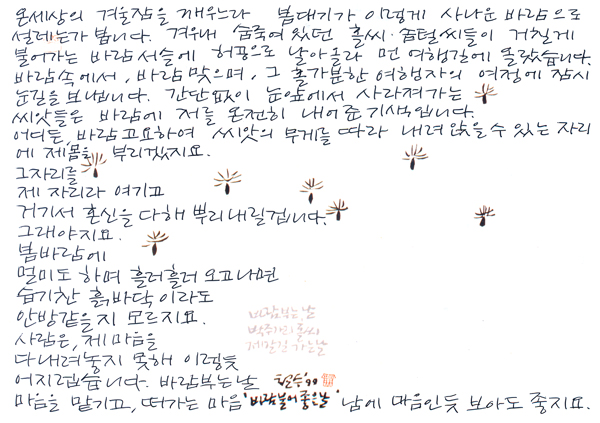 온세상의 겨울잠을 깨우느라 봄대기가 이렇게 사나운 바람으로
설레는가 봅니다. 겨우내 숨죽여 있던 홀씨·깃털씨들이 거칠게
불어가는 바람서슬에 허공으로 날아올라 먼 여행길에 올랐습니다.
바람속에서, 바람 맞으며, 그 홀가분한 여행자의 여정에 잠시
눈길을 보냅니다. 간단없이 눈앞에서 사라져가는
씨앗들은 바람에 저를 온전히 내어준 기색입니다.
어디든, 바람 고요하여 씨앗의 무게를 따라 내려앉을 수 있는 자리
에 제몸을 부리겠지요.
그자리를
제 자리라 여기고
거기서 혼신을 다해 뿌리내릴겁니다.
그래야지요.
봄바람에
멀미도 하며 흘러흘러 오고나면
습기찬 흙바닥이라도
안방같을지 모르지요.
바람부는 날
박주가리 홀씨
제갈길 가는 날
사람은, 제 마음을
다내려놓지 못해 이렇듯
어지럽습니다. 바람부는날 철수'99
마음을 맡기고, 떠가는 마음 '바람불어 좋은날' 남에 마음인듯 보아도 좋지요.